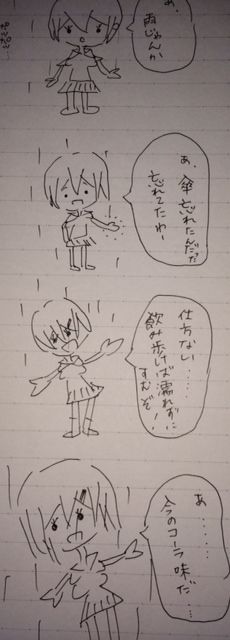 あ、
雨じゃんか
ポツポツ…
あ、傘忘れたんだった
忘れてたわー
仕方ない……
飲み歩けば濡れずに
すむぞ!
あ………
今のコーラ味だ…